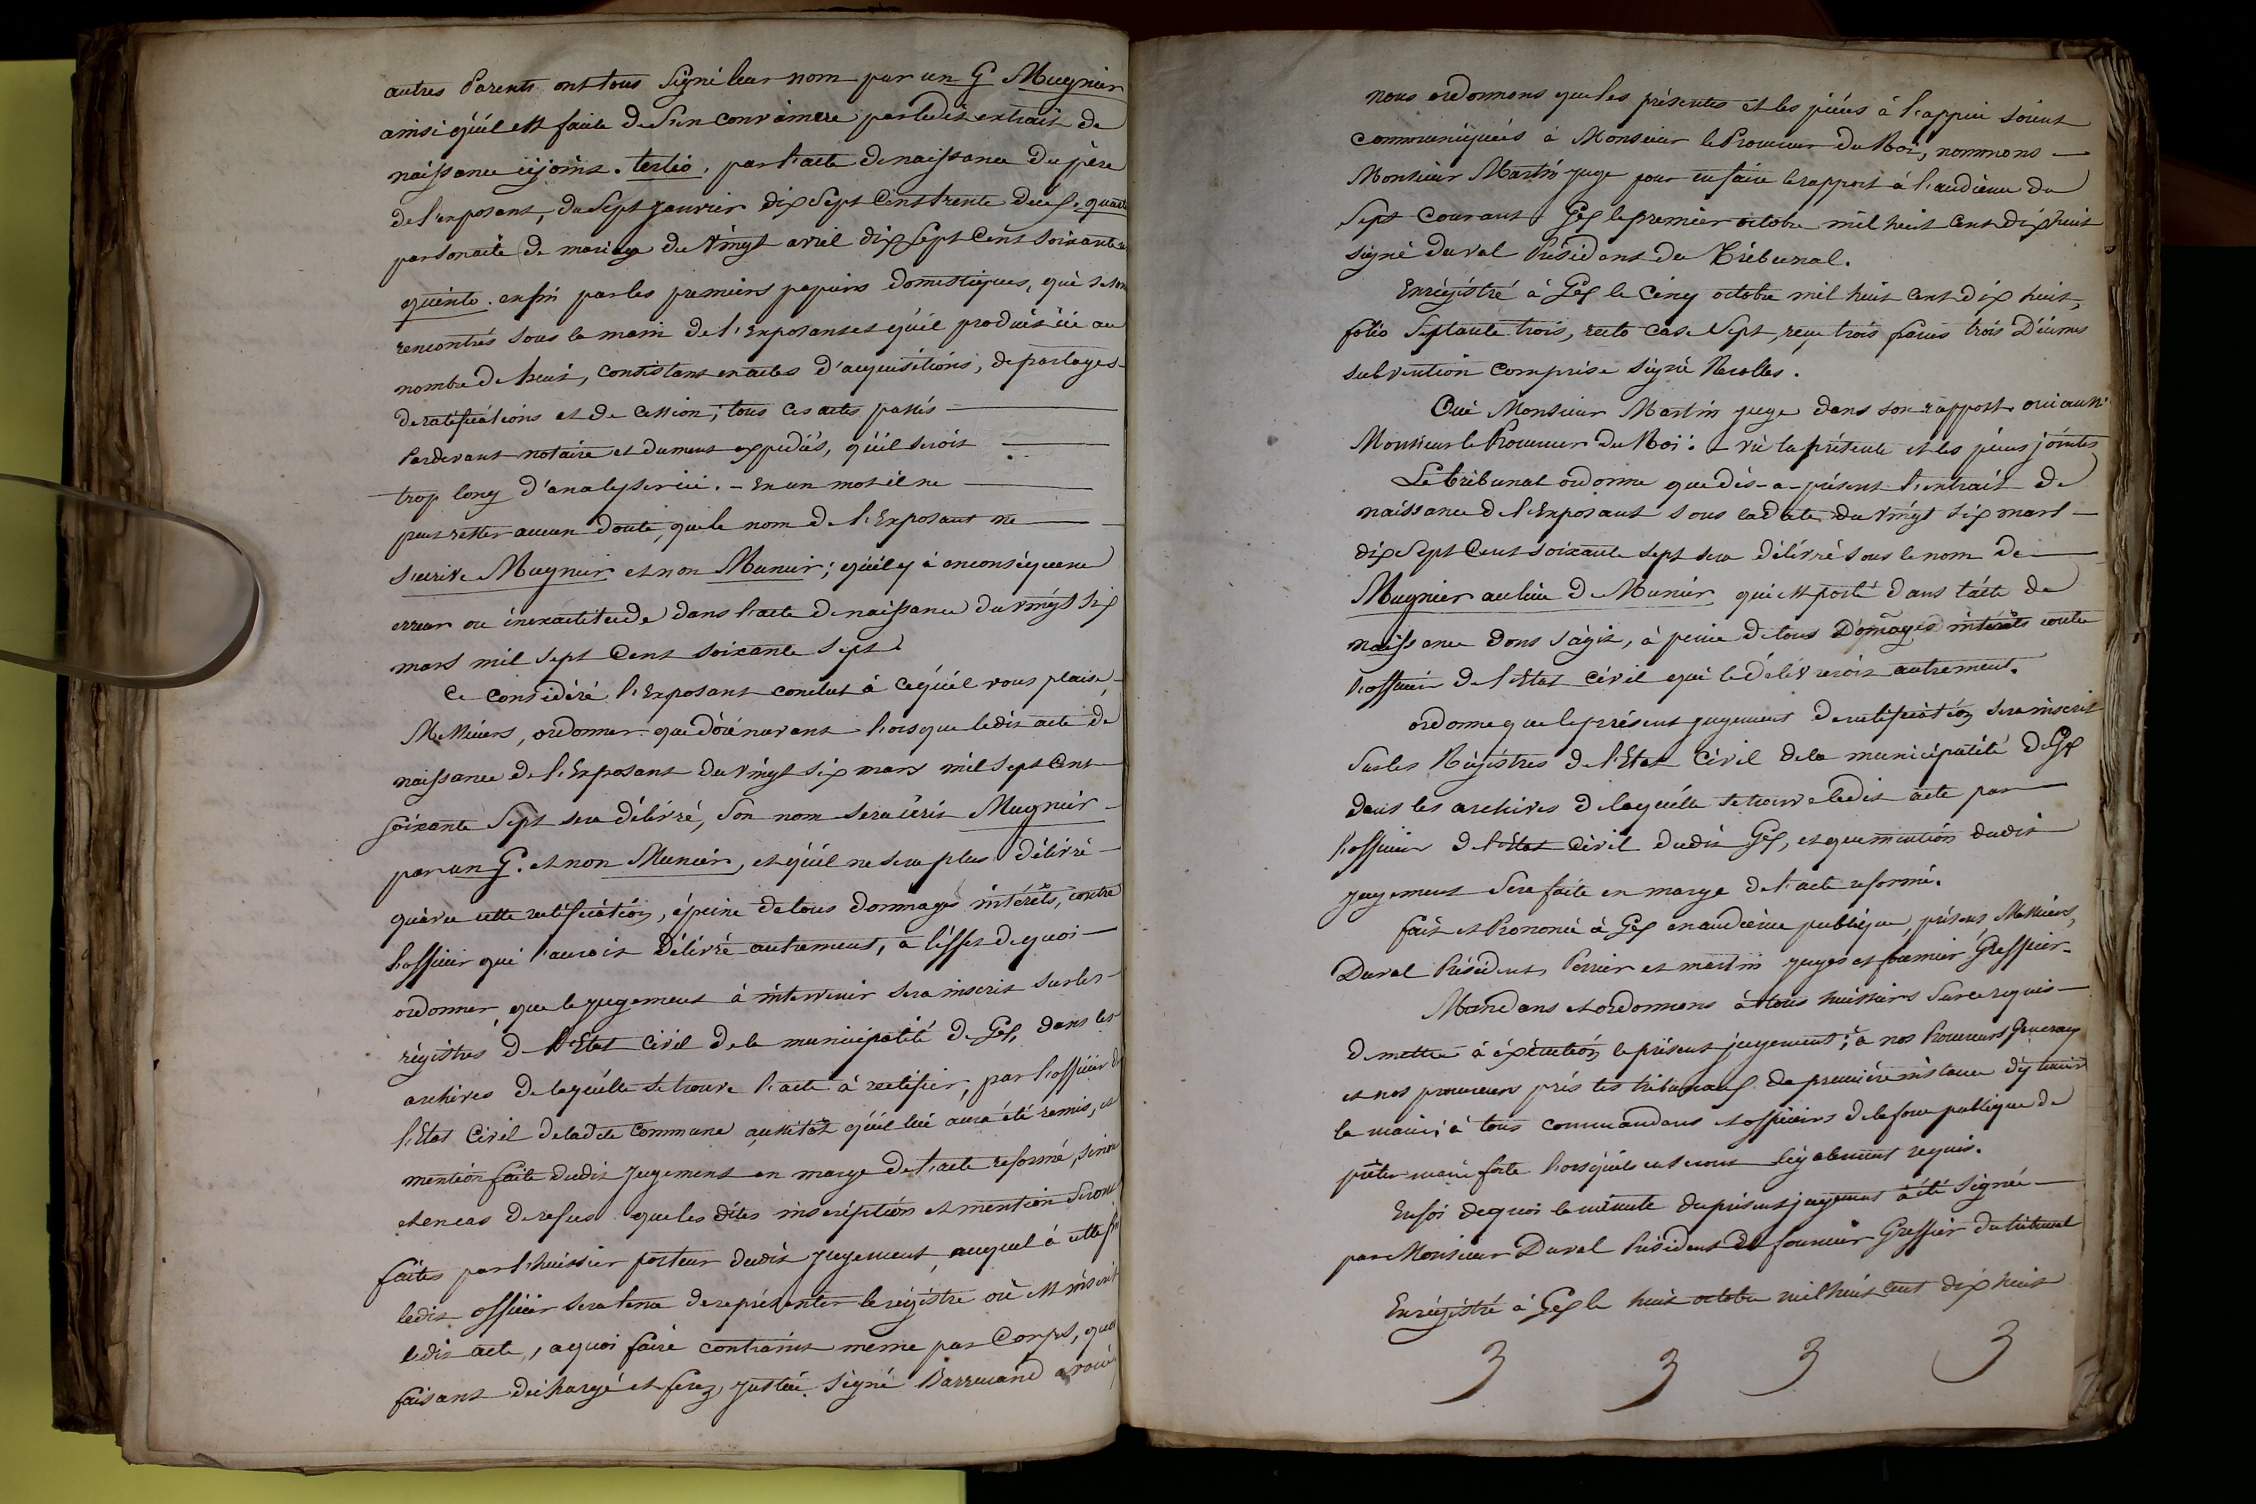 autres Parents ont tous Signé leur nom par un G Mugnier
ainsi qu'il est facile de s'en convaincre par ledit extrait de
naissance cijoint. tertio, par l'acte de naissance du père
de l'exposant, du Sept janvier dix Sept Cent trente deux. quarto
par son acte de mariage du Vingt avril dix Sept Cent Soixante
quinto. enfin par les premiers papiers domestiques, qui se sont
rencontrés sous la main de l'Exposant et qu'il produit ici au
nombre de huit, consistant en actes d'acquisitions, de partages
de ratifications et de cession; tous ces actes passés
Pardevant notaire et dument expediés, qu'il seroit
trop long d'analyser ici. – En un mot il ne
peut rester aucun doute, que le nom de l'Exposant ne
s'ecrive Mugnier et non Munier; qu'il y a en conséquence
erreur ou inexactitude dans l'acte de naissance du vingt six
mars mil Sept Cent soixante Sept
Ce Considéré l'Exposant conclut à ce qu'il vous plaise,
Messieurs, ordonner que dorénavant lorsque ledit acte de
naissance de l'Exposant du Vingt Six mars mil Sept Cent
soixante Sept sera délivré, Son nom sera écrit Mugnier
par un G. et non Munier, et qu'il ne sera plus délivré
qu'avec cette rectification, à peine de tous dommages intérêts, contre
l'officier qui l'auroit délivré autrement, à l'effet de quoi
ordonner, que le jugement à intervenir sera inscrit sur les
régistres de l'Etat Civil de la municipalité de Gex, dans les
archives de laquelle se trouve l'acte à rectifier, par l'officier de
l'Etat Civil de ladite Commune aussitôt qu'il lui aura été remis, et
mention faite dudit Jugement en marge de l'acte reformé, sinon
et en cas de refus que les dites inscription et mention Seront
faites par l'huissier porteur dudit jugement, auquel à cette fin
ledit officier sera tenu de représenter le régistre où est inscrit
ledit acte, a quoi faire contraint même par Corps, quoi
faisant déchargé et ferez justice. Signé Barrucand avoué
nous ordonnons que les présentes et les pièces à l'appui soient
communiquées à Monsieur le Procureur du Roi, nommons
Monsieur Martin juge pour en faire le rapport à l'audience du
Sept Courant. Gex le premier octobre mil huit cent dix huit
signé Duval Président du Tribunal.
Enrégistré à Gex le Cinq octobre mil huit cent dix huit,
folio Septante trois, recto case Sept, reçu trois francs trois Décimes
subvention comprise signé
Oui Monsieur Martin juge dans son rapport. oui aussi
Monsieur le Procureur du Roi: – vù la présente et les pièces jointes
Le tribunal ordonne que dès-a-présent l'extrait de
naissance de l'Exposant sous la date du Vingt Six mars
dix Sept Cent soixante Sept sera délivré sous le nom de
Mugnier au lieu de Munier qui est porté dans l'acte de
naissance dont s'agit, à peine de tous Domages intérêts contre
l'officier de l'Etat Civil qui le délivreroit autrement.
ordonne que le présent jugement de rectification sera inscrit
Sur les Régistres de l'Etat Civil de la municipalité de Gex
dans les archives de laquelle se trouve ledit acte par
l'officier de l'Etat Civil dudit Gex, et que mention dudit
jugement Sera faite en marge de l'acte reformé.
fait et Prononcé à Gex en audience publique, présens Messieurs,
Duval Président, Perrier et martin Juges et fournier Greffier.
Mandons et ordonnons à tous huissiers Sur ce requis
de mettre à éxécution le présent jugement; à nos Procureurs Generaux
et nos procureurs près les tribunaux de première instance d'y tenir
la main; à tous commandans et officiers de la force publique de
prêter main forte lorsqu'ils en seront légalement requis.
En foi de quoi la minute du présent jugement à été signée
par Monsieur Duval Président et fournier Greffier du tribunal
Enrégistré à Gex le huit octobre mil huit cent dix huit
3 3 3 3